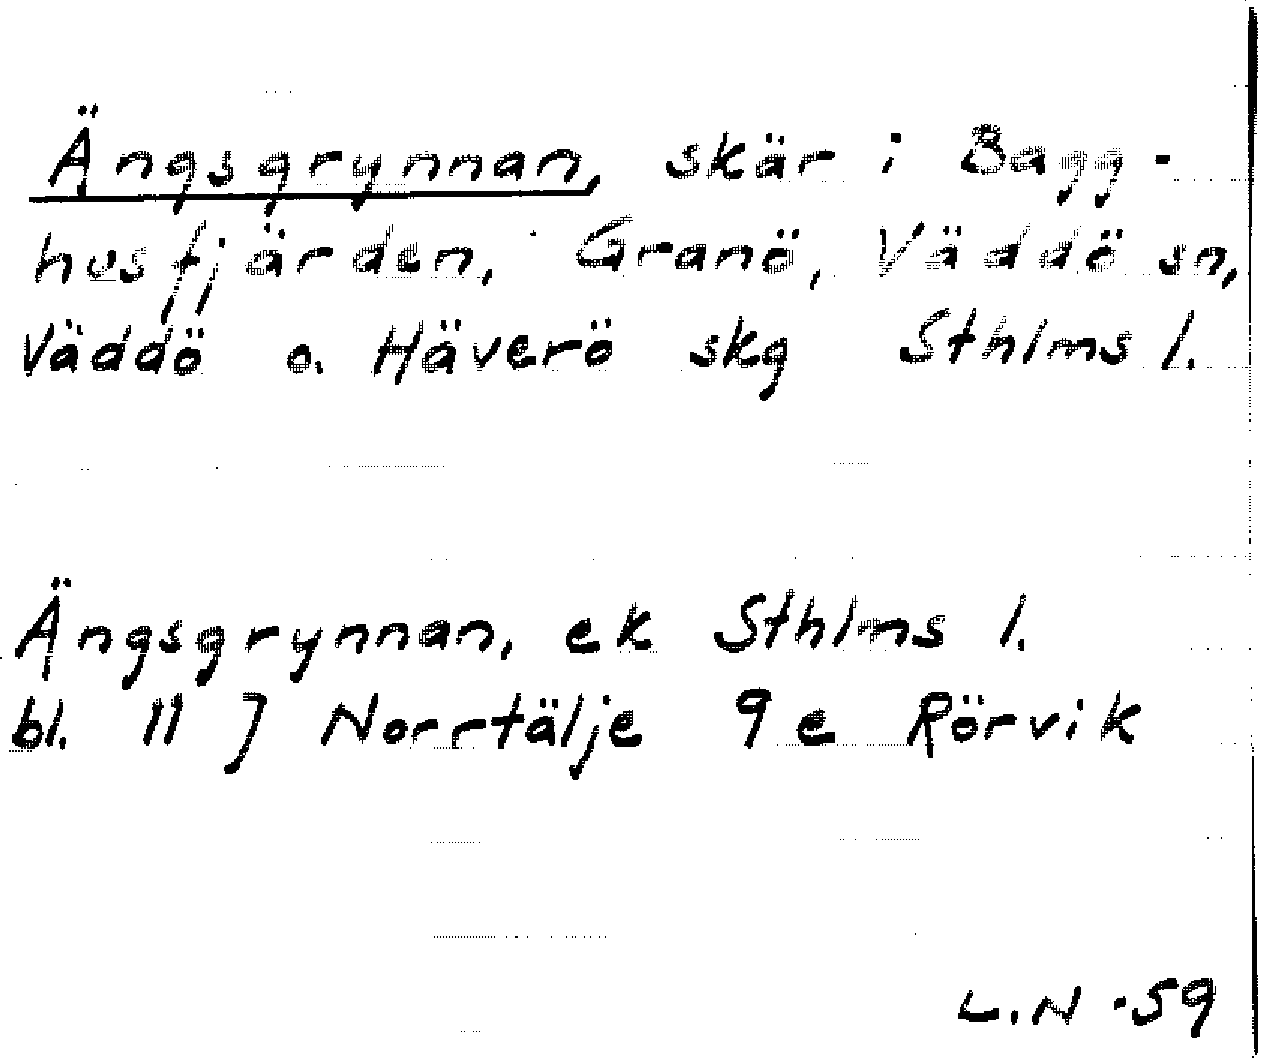 Ängsgrynnan, skär i Bagg-
husfjärden, Granö, Väddö sn,
Väddö o. Häverö skg Sthlms l.
Ängsgrynnan, ek Sthlms l.
bl. 11 J Norrtälje 9e Rörvik
L.N -59